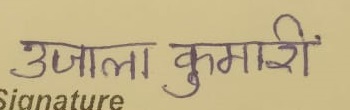 उजाला कुमारी
Signature